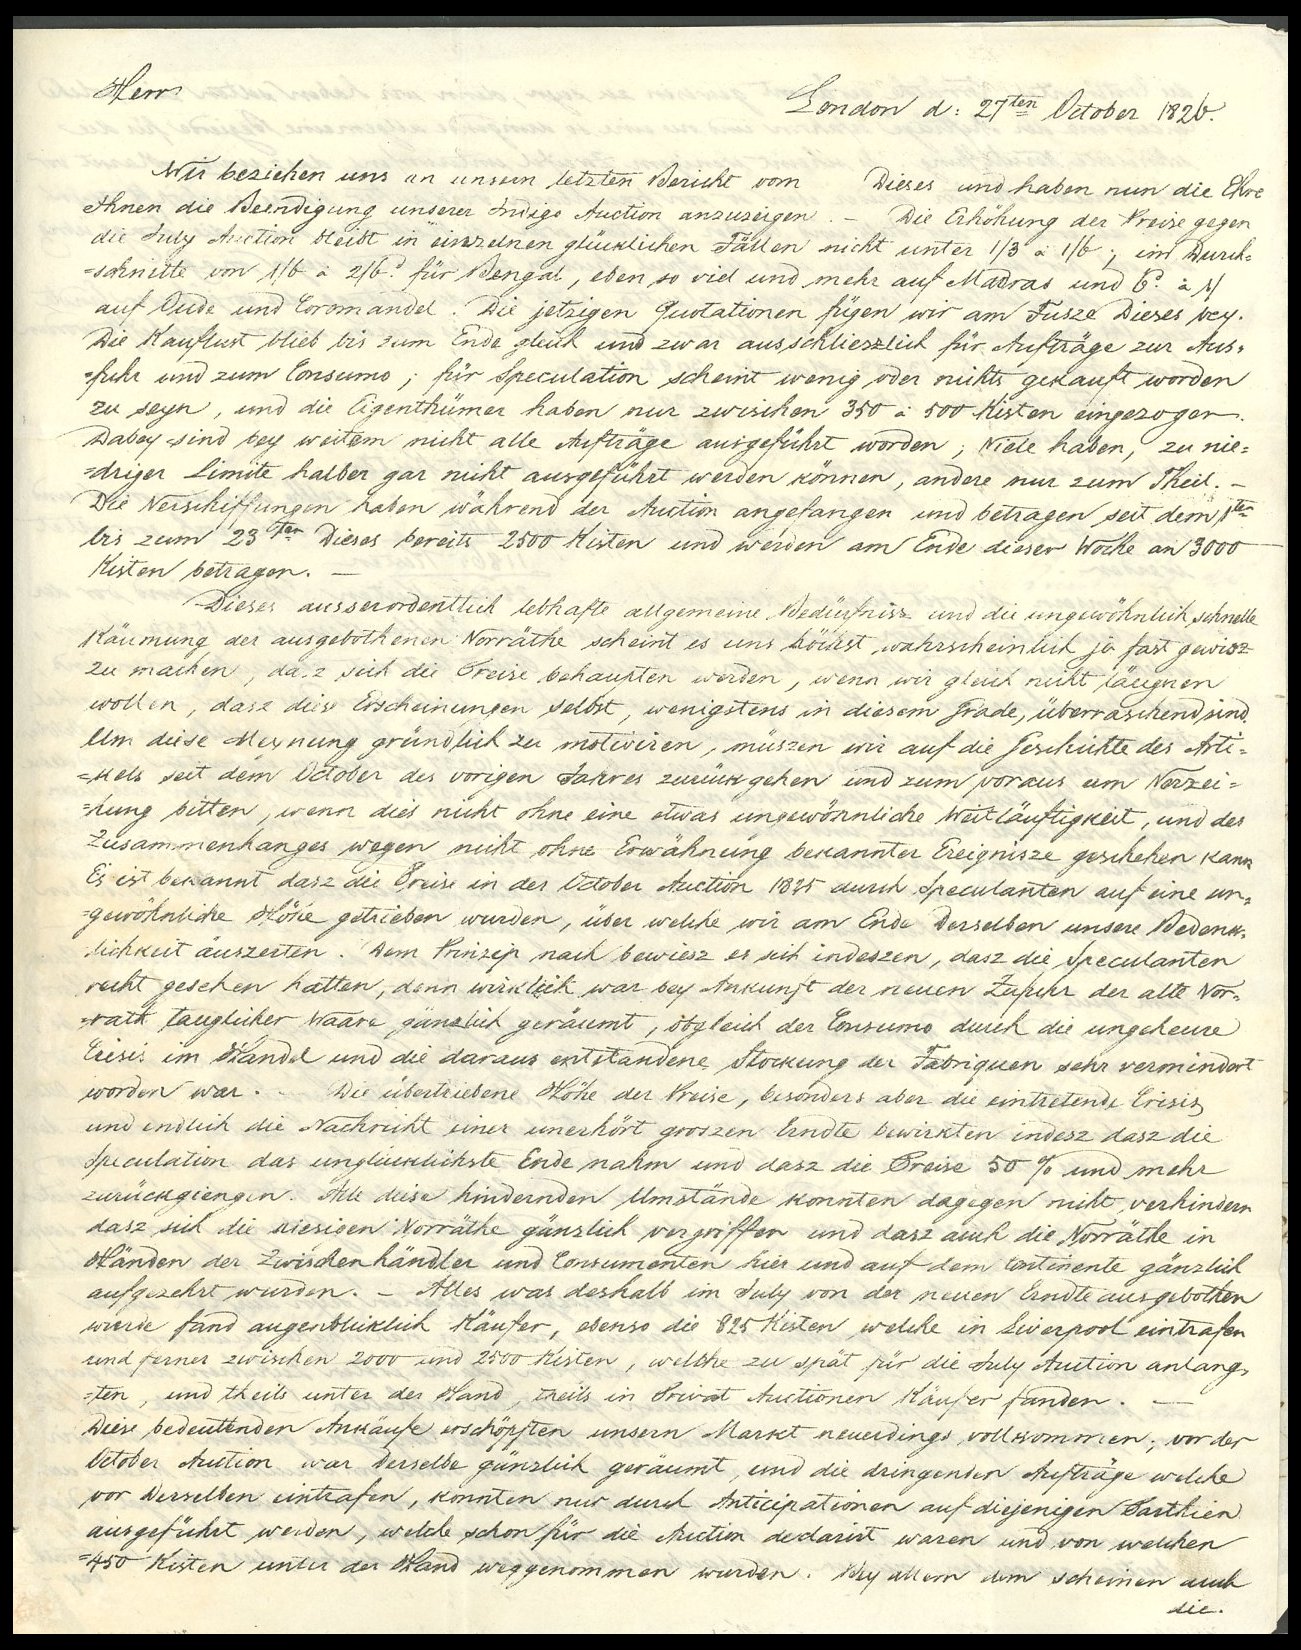 Herrn
London d: 27ten October 1826.
Wir beziehen uns an unsern letzten Bericht vom Dieses und haben nun die Ehre
Ihnen die Beendigung unserer Indigo Auction anzuzeigen. – Die Erhöhung der Preise gegen
die July Auction bleibt in einzelnen glücklichen Fällen nicht unter 1/3 à 1/6; im Durch-
=schnitte von 1/6 à 2/6d für Bengal, eben so viel und mehr auf Madras und 6d à 1/
auf Oude und Coromandel. Die jetzigen Quotationen fügen wir am Fusze Dieses bey.
Die Kauflust blieb bis zum Ende gleich und zwar ausschlieszlich für Aufträge zur Aus=
=fuhr und zum Consumo; für Speculation scheint wenig oder nichts gekauft worden
zu seyn, und die Eigenthümer haben nur zwischen 350 à 500 Kisten eingezogen.
Dabey sind bey weitem nicht alle Aufträge ausgeführt worden; Viele haben, zu nie=
=driger Limite halber gar nicht ausgeführt werden können, andere nur zum Theil. –
Die Verschiffungen haben während der Auction angefangen und betragen seit dem 1ten
bis zum 23ten Dieses bereits 2500 Kisten und werden am Ende dieser Woche an 3000
Kisten betragen. –
Dieses ausserordentlich lebhafte allgemeine Bedürfnisz und die ungewöhnlich schnelle
Räumung der ausgebothenen Vorräthe scheint es uns höchst wahrscheinlich ja fast gewisz
zu machen, dasz sich die Preise behaupten werden, wenn wir gleich nicht läugnen
wollen, dasz diese Erscheinungen selbst, wenigstens in diesem Grade, überraschend sind.
Um diese Meynung gründlich zu motiviren, müszen wir auf die Geschichte des Arti=
=kels seit dem October des vorigen Jahres zurückgehen und zum voraus um Verzei=
=hung bitten, wenn dies nicht ohne eine etwas ungewöhnliche Weitläuftigkeit, und des
Zusammenhanges wegen nicht ohne Erwähnung bekannter Ereignisze geschehen kann
Es ist bekannt dasz die Preise in der October Auction 1825 durch Speculanten auf eine un=
=gewöhnliche Höhe getrieben wurden, über welche wir am Ende Derselben unsere Bedenk=
lichkeit äuszerten. Dem Prinzip nach bewiesz es sich indeszen, dasz die Speculanten
recht gesehen hatten, denn wirklich war bey Ankunft der neuen Zufuhr der alte Vor=
=rath tauglicher Waare gänzlich geräumt, obgleich der Consumo durch die ungeheure
Crisis im Handel und die daraus entstandene Stockung der Fabriquen sehr vermindert
worden war. – Die übertriebene Höhe der Preise, besonders aber die eintretende Crisis
und endlich die Nachricht einer unerhört groszen Erndte bewirkten indesz dasz die
Speculation das unglücklichste Ende nahm und dasz die Preise 50 % und mehr
zurückgiengen. Alle diese hindernden Umstände konnten dagegen nicht verhindern
dasz sich die hiesigen Vorräthe gänzlich vergriffen und dasz auch die Vorräthe in
Händen der Zwischenhändler und Consumenten hier und auf dem Continente gänzlich
aufgezehrt wurden. – Alles was deshalb im July von der neuen Erndte ausgebothen
wurde fand augenblicklich Käufer, ebenso die 825 Kisten welche in Liverpool eintrafen
und ferner zwischen 2000 und 2500 Kisten, welche zu spät für die July Auction anlang=
=ten, und theils unter der Hand, theils in Privat Auctionen Käufer fanden. –
Diese bedeutenden Ankäufe erschöpften unsern Markt neuerdings vollkommen; vor der
October Auction war derselbe gänzlich geräumt, und die dringenden Aufträge welche
vor Derselben eintrafen, konnten nur durch Anticipationen auf diejenigen Parthien
ausgeführt werden, welche schon für die Auction declarirt waren und von welchen
=450 Kisten unter der Hand weggenommen wurden. Bey allem dem scheinen auch
die.